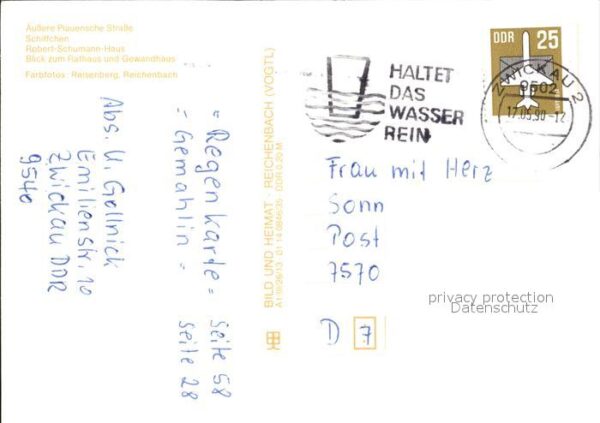 Äußere Plauensche Straße
Schiffchen
Robert-Schumann-Haus
Blick zum Rathaus und Gewandhaus
Farbfotos: Reisenberg, Reichenbach
Abs. U. Gollnick
Emilienstr. 10
Zwickau DDR
9540
= Regenkarte = Seite 58
= Gemahlin = Seite 28
BILD UND HEIMAT · REICHENBACH (VOGTL)
A1/III/26/13 01 14 0846/35 DDR 0,20 M
HALTET
DAS
WASSER
REIN
DDR 25
ZWICKAU 2
9502
17.05.90-12
Frau mit Herz
Sonn
Post
7570
D 7
privacy protection
Datenschutz